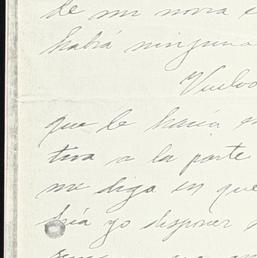 de mi novia
habrá ninguna
Vuelvo
que le hacía
tiva a la parte
me diga en que
bía yo disponer